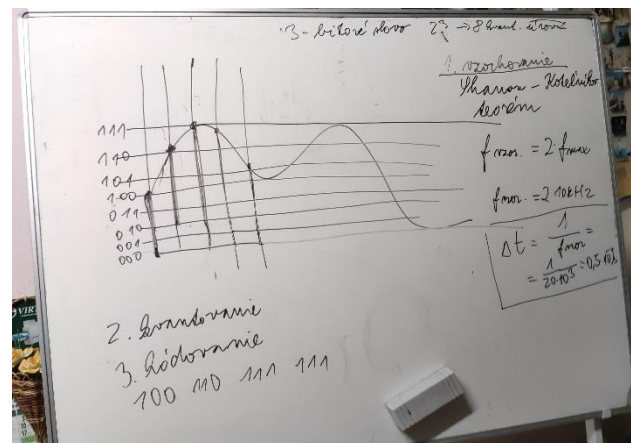 3-bitové slovo 2³ → 8 kvant. úrovní
1. vzorkovanie
Shanon - Kotelnikov
teorém
f vzor. = 2·fmax
f vzor. = 2 10kHz
Δt = 1/fvzor =
= 1/20·10³ = 0,5
111
110
101
100
011
010
001
000
2. kvantovanie
3. kódovanie
100 110 111 111